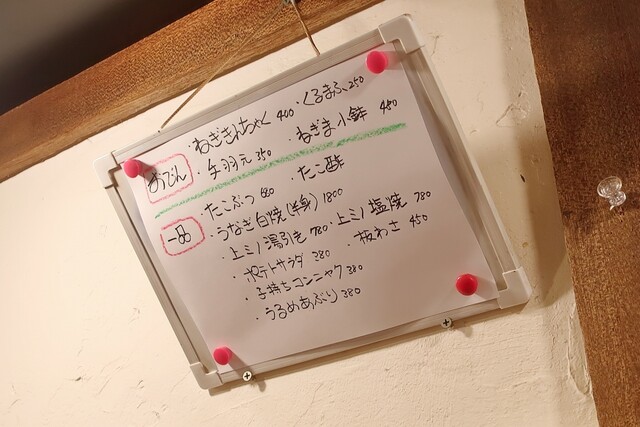 おでん
・ねぎきんちゃく 400 ・くるまふ 250
・手羽元 350 ・ねぎま小鉢 480
一品
・たこぶつ 680 ・たこ酢
・うなぎ白焼(半身) 1800
・上ミノ湯引き 780 ・上ミノ塩焼 780
・ポテトサラダ 380 ・板わさ 450
・子持ちコンニャク 380
・うるめあぶり 380